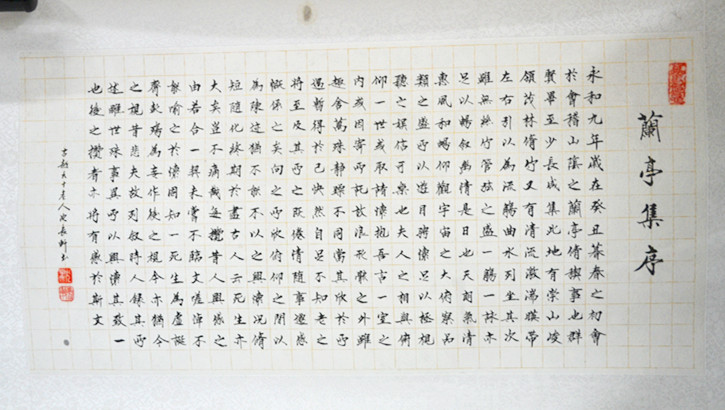 蘭亭集序
永和九年歲在癸丑暮春之初會
於會稽山陰之蘭亭脩禊事也群
賢畢至少長咸集此地有崇山峻
領茂林脩竹又有清流激湍暎帶
左右引以為流觴曲水列坐其次
雖無絲竹管弦之盛一觴一詠亦
足以暢敘幽情是日也天朗氣清
惠風和暢仰觀宇宙之大俯察品
類之盛所以遊目騁懷足以極視
聽之娛信可樂也夫人之相與俯
仰一世或取諸懷抱悟言一室之
內或因寄所託放浪形骸之外雖
趣舍萬殊靜躁不同當其欣於所
遇暫得於己快然自足不知老之
將至及其所之既倦情隨事遷感
慨係之矣向之所欣俯仰之間以
為陳迹猶不能不以之興懷況脩
短隨化終期於盡古人云死生亦
大矣豈不痛哉每攬昔人興感之
由若合一契未嘗不臨文嗟悼不
能喻之於懷固知一死生為虛誕
齊彭殤為妄作後之視今亦猶今
之視昔悲夫故列敘時人錄其所
述雖世殊事異所以興懷其致一
也後之攬者亦將有感於斯文